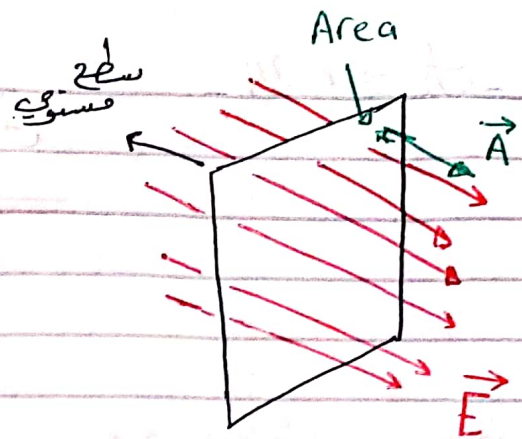 Area
سطح
مستوي
A
E